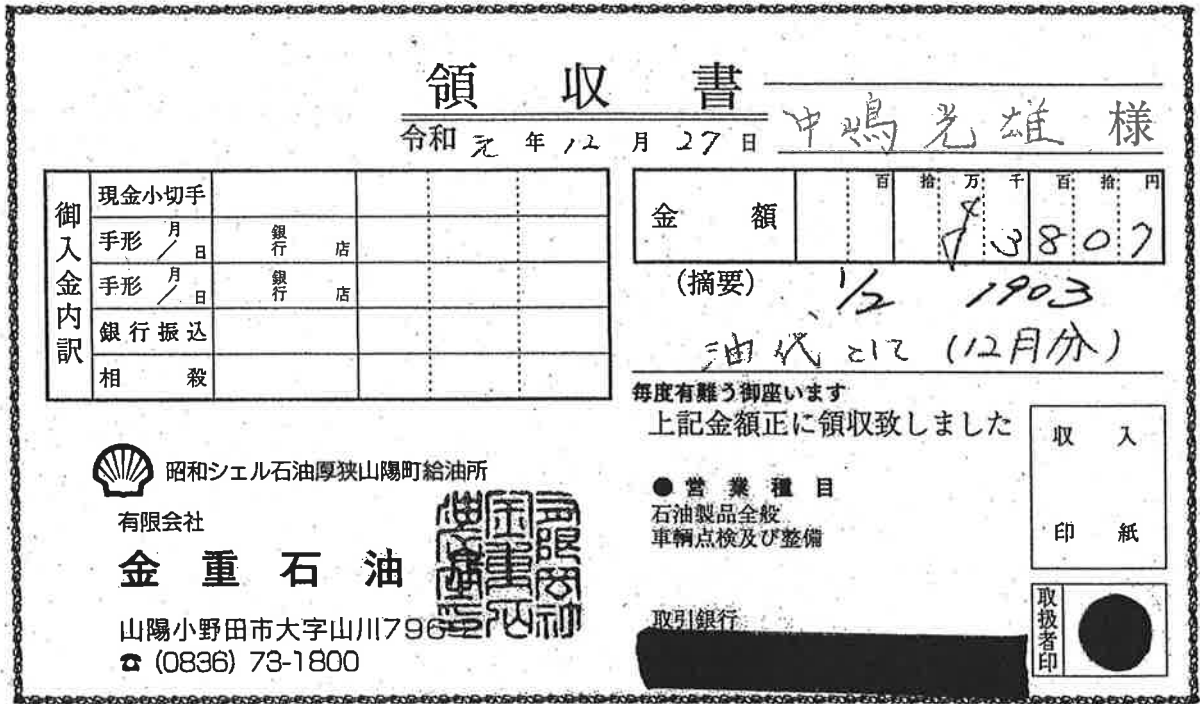 領収書
令和元年12月27日
中嶋光雄 様
御入金内訳
現金小切手
手形 月/日 銀行 店
手形 月/日 銀行 店
銀行振込
相殺
金額
百拾万千百拾円
3807
(摘要) 1/2 1903
油代として (12月分)
毎度有難う御座います
上記金額正に領収致しました
収入
印紙
昭和シェル石油厚狭山陽町給油所
有限会社
金重石油
山陽小野田市大字山川796-2
☎ (0836) 73-1800
●営業種目
石油製品全般
車輌点検及び整備
取引銀行
取扱者印